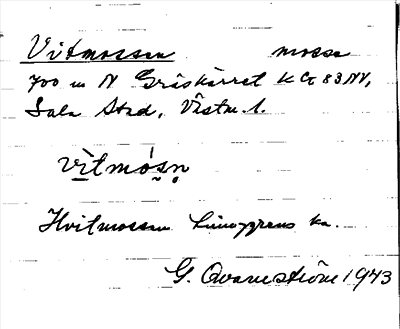 Vitmossen mosse
700 m N Gräskärret k G 83 NV,
Sala Stad, Västm. l.
vitmósn̥
Hvitmossen ka.
G. Qvarnström 1943